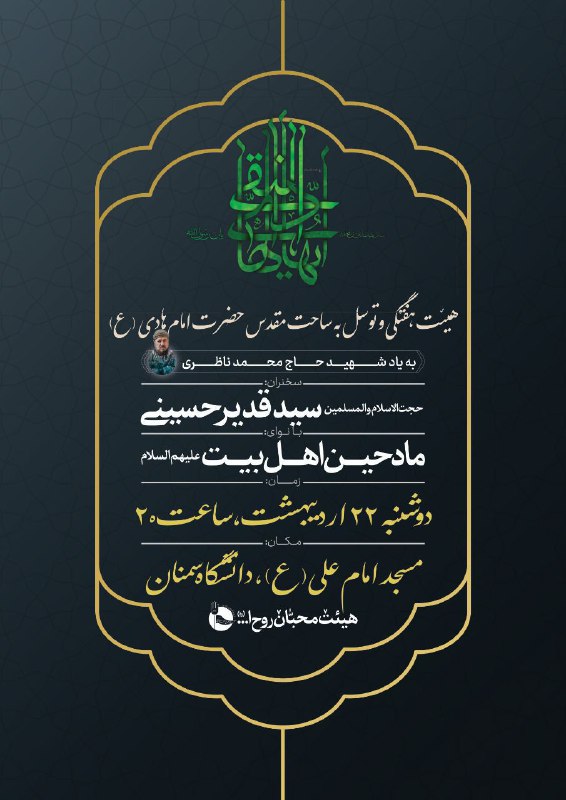 هیئت هفتگی و توسل به ساحت مقدس حضرت امام هادی (ع)
به یاد شهید حاج محمد ناظری
سخنران:
حجت الاسلام والمسلمین سید قدیر حسینی
با نوای:
مادحین اهل بیت علیهم السلام
زمان:
دوشنبه ۲۲ اردیبهشت، ساعت ۲۰
مکان:
مسجد امام علی (ع)، دانشگاه سمنان
هیئت محبان روح ا...